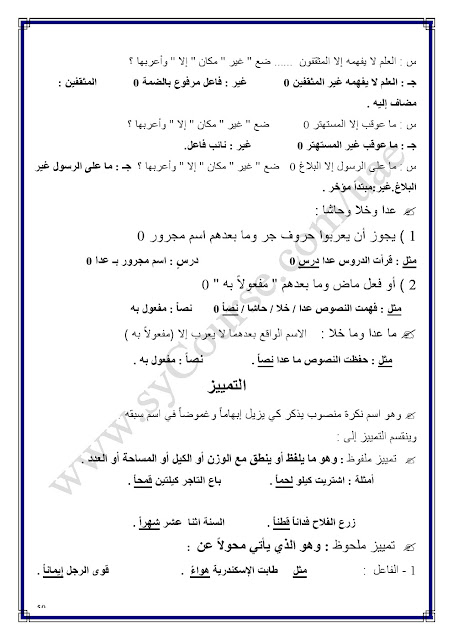 س : العلم لا يفهمه إلا المثقفون ...... ضع " غير " مكان " إلا " وأعربها ؟
جـ : العلم لا يفهمه غير المثقفين 0 غير : فاعل مرفوع بالضمة 0 المثقفين :
مضاف إليه .
س : ما عوقب إلا المستهتر 0 ضع " غير " مكان " إلا " وأعربها ؟
جـ : ما عوقب غير المستهتر 0 غير : نائب فاعل.
س : ما على الرسول إلا البلاغ 0 ضع " غير " مكان " إلا " وأعربها ؟ جـ : ما على الرسول غير
البلاغ.غير:مبتدأ مؤخر .
عدا وخلا وحاشا :
1 ) يجوز أن يعربوا حروف جر وما بعدهم اسم مجرور 0
مثل : قرأت الدروس عدا درس 0 درس : اسم مجرور بـ عدا 0
2 ) أو فعل ماض وما بعدهم " مفعولاً به " 0
مثل : فهمت النصوص عدا / خلا / حاشا / نصاً 0 نصاً : مفعول به
ما عدا وما خلا : الاسم الواقع بعدهما لا يعرب إلا (مفعولاً به )
مثل : حفظت النصوص ما عدا نصاً . نصاً : مفعول به .
التمييز
وهو اسم نكرة منصوب يذكر كي يزيل إيهاماً وغموضاً في اسم سبقه .
وينقسم التمييز إلى :
تمييز ملفوظ : وهو ما يلفظ أو ينطق مع الوزن أو الكيل أو المساحة أو العدد .
أمثلة : اشتريت كيلو لحماً . باع التاجر كيلتين قمحاً .
زرع الفلاح فداناً قطناً . السنة اثنا عشر شهراً .
تمييز ملحوظ : وهو الذي يأتي محولاً عن :
1 - الفاعل : مثل طابت الإسكندرية هواءً . قوى الرجل إيماناً .
www.syCourse.com/uae